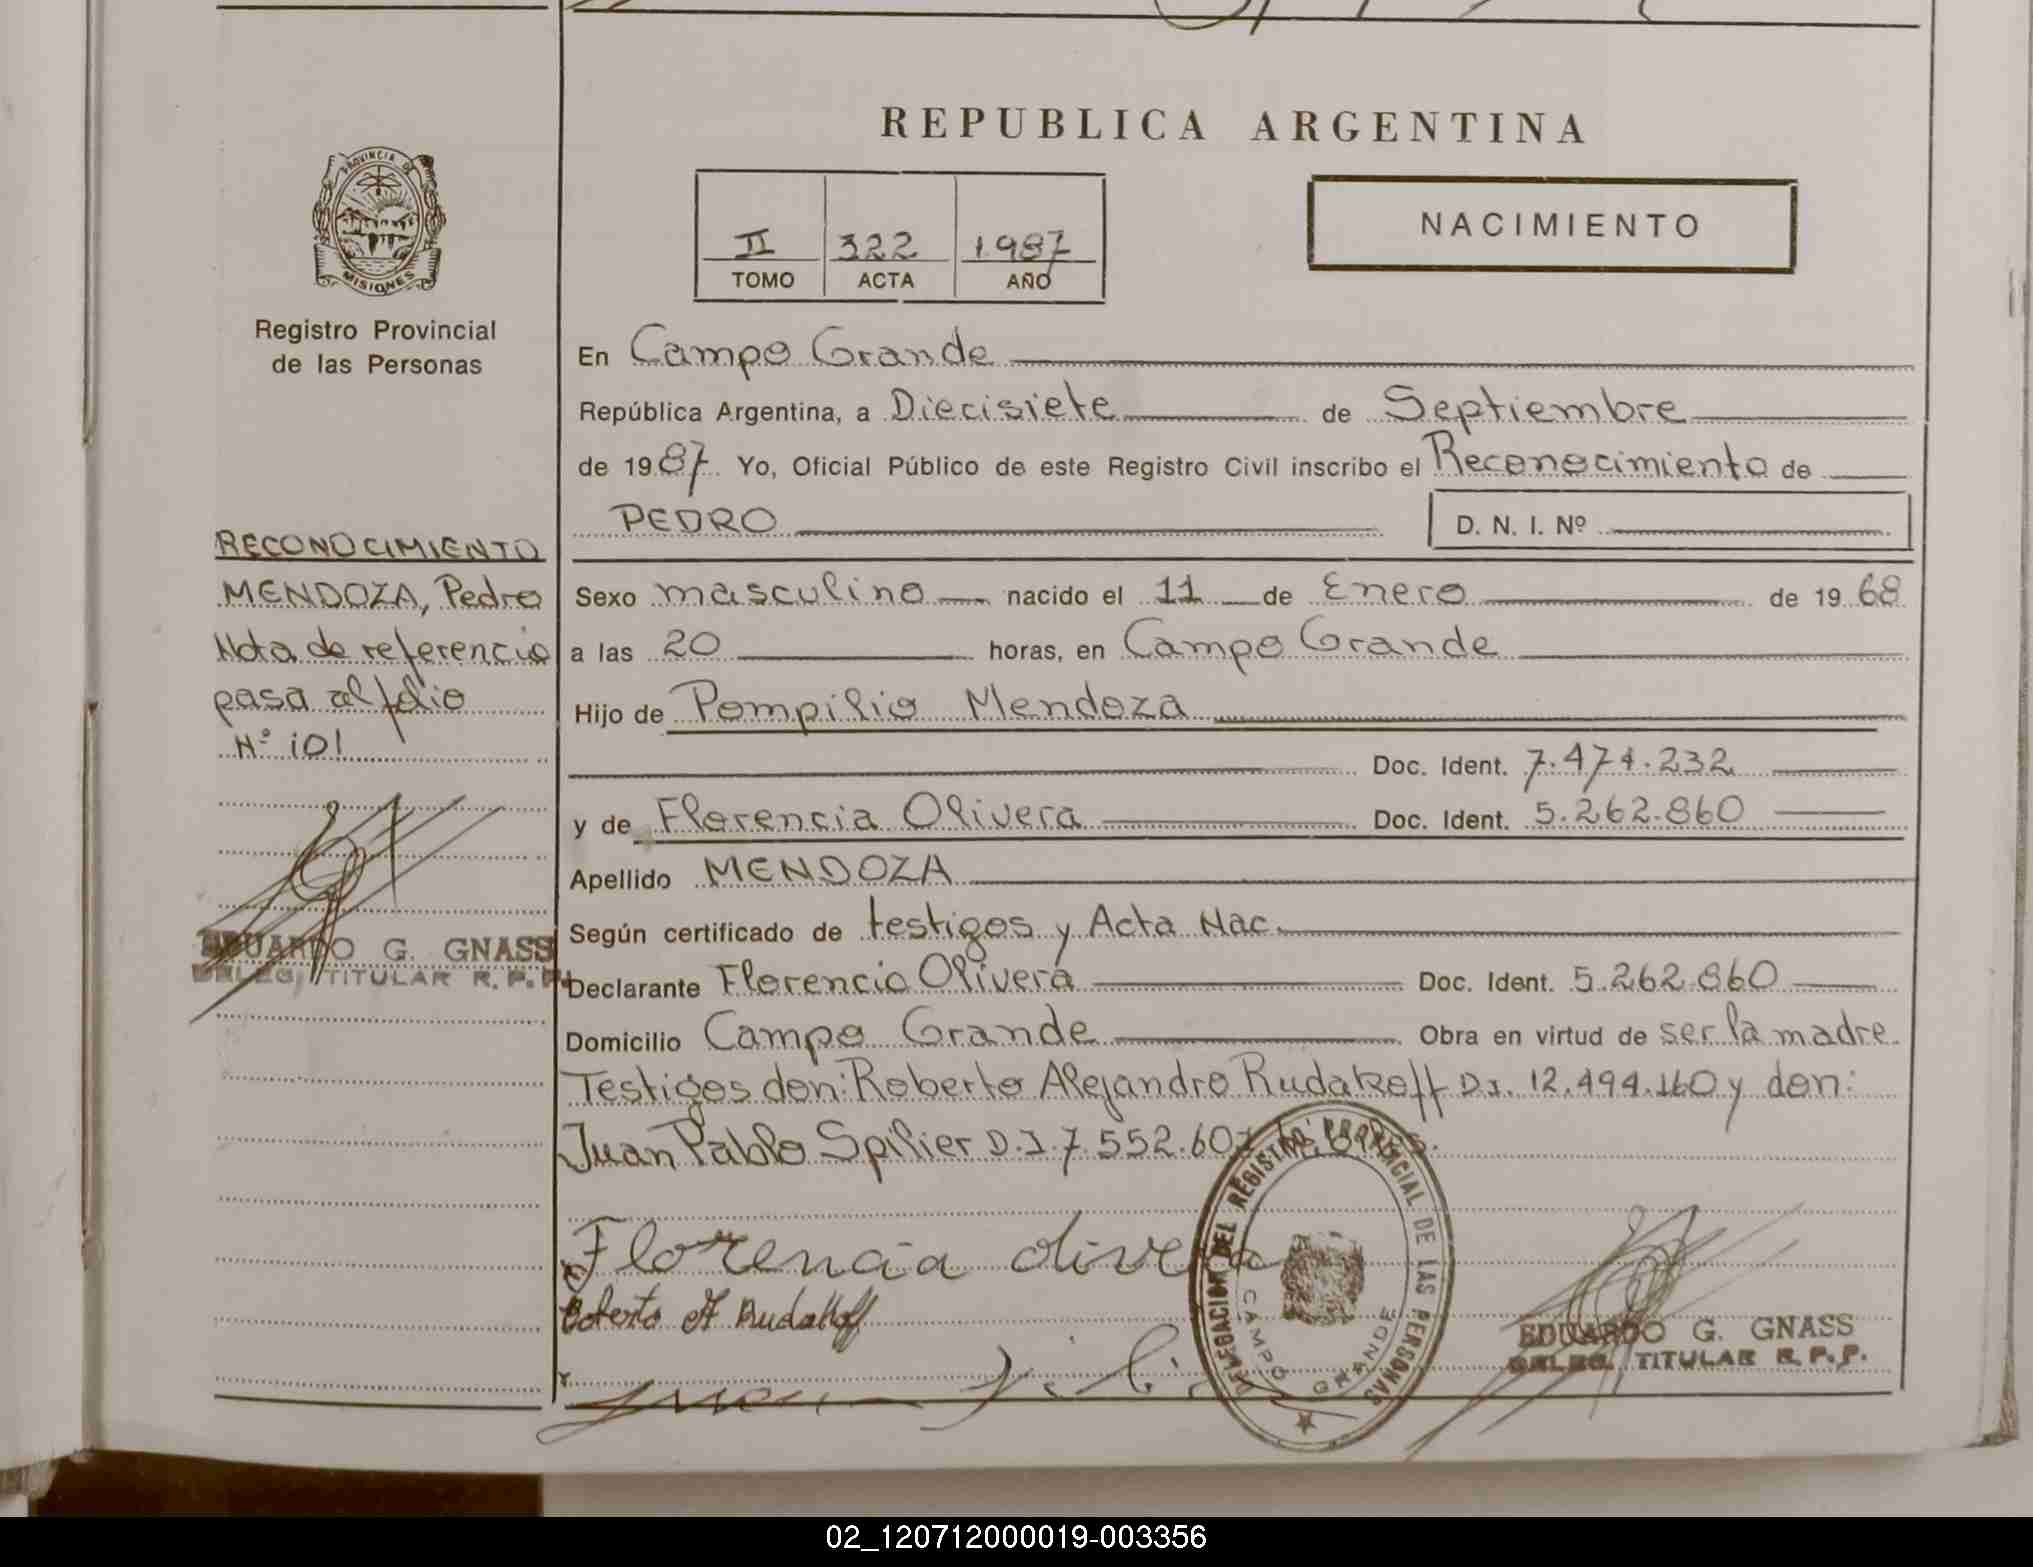 REPUBLICA ARGENTINA
PROVINCIA DE MISIONES
Registro Provincial
de las Personas
II 322 1987
TOMO ACTA AÑO
NACIMIENTO
En Campo Grande
República Argentina, a Diecisiete de Septiembre
de 1987. Yo, Oficial Público de este Registro Civil inscribo el Reconocimiento de
PEDRO D. N. I. Nº
Sexo masculino nacido el 11 de Enero de 1968
a las 20 horas, en Campo Grande
Hijo de Pompilio Mendoza
Doc. Ident. 7.474.232
y de Florencia Olivera Doc. Ident. 5.262.860
Apellido MENDOZA
Según certificado de testigos y Acta Nac.
Declarante Florencia Olivera Doc. Ident. 5.262.860
Domicilio Campo Grande Obra en virtud de ser la madre.
Testigos don: Roberto Alejandro Rudakoff D.I. 12.494.160 y don:
Juan Pablo Spilier D.I. 7.552.601
Florencia Olivera
Roberto A Rudakoff
DELEGACION DEL REGISTRO PROVINCIAL DE LAS PERSONAS
CAMPO GRANDE
EDUARDO G. GNASS
DELEG. TITULAR R.P.P.
RECONOCIMIENTO
MENDOZA, Pedro
Nota de referencia
pasa al folio
Nº 101
EDUARDO G. GNASS
DELEG. TITULAR R.P.P.
02_120712000019-003356